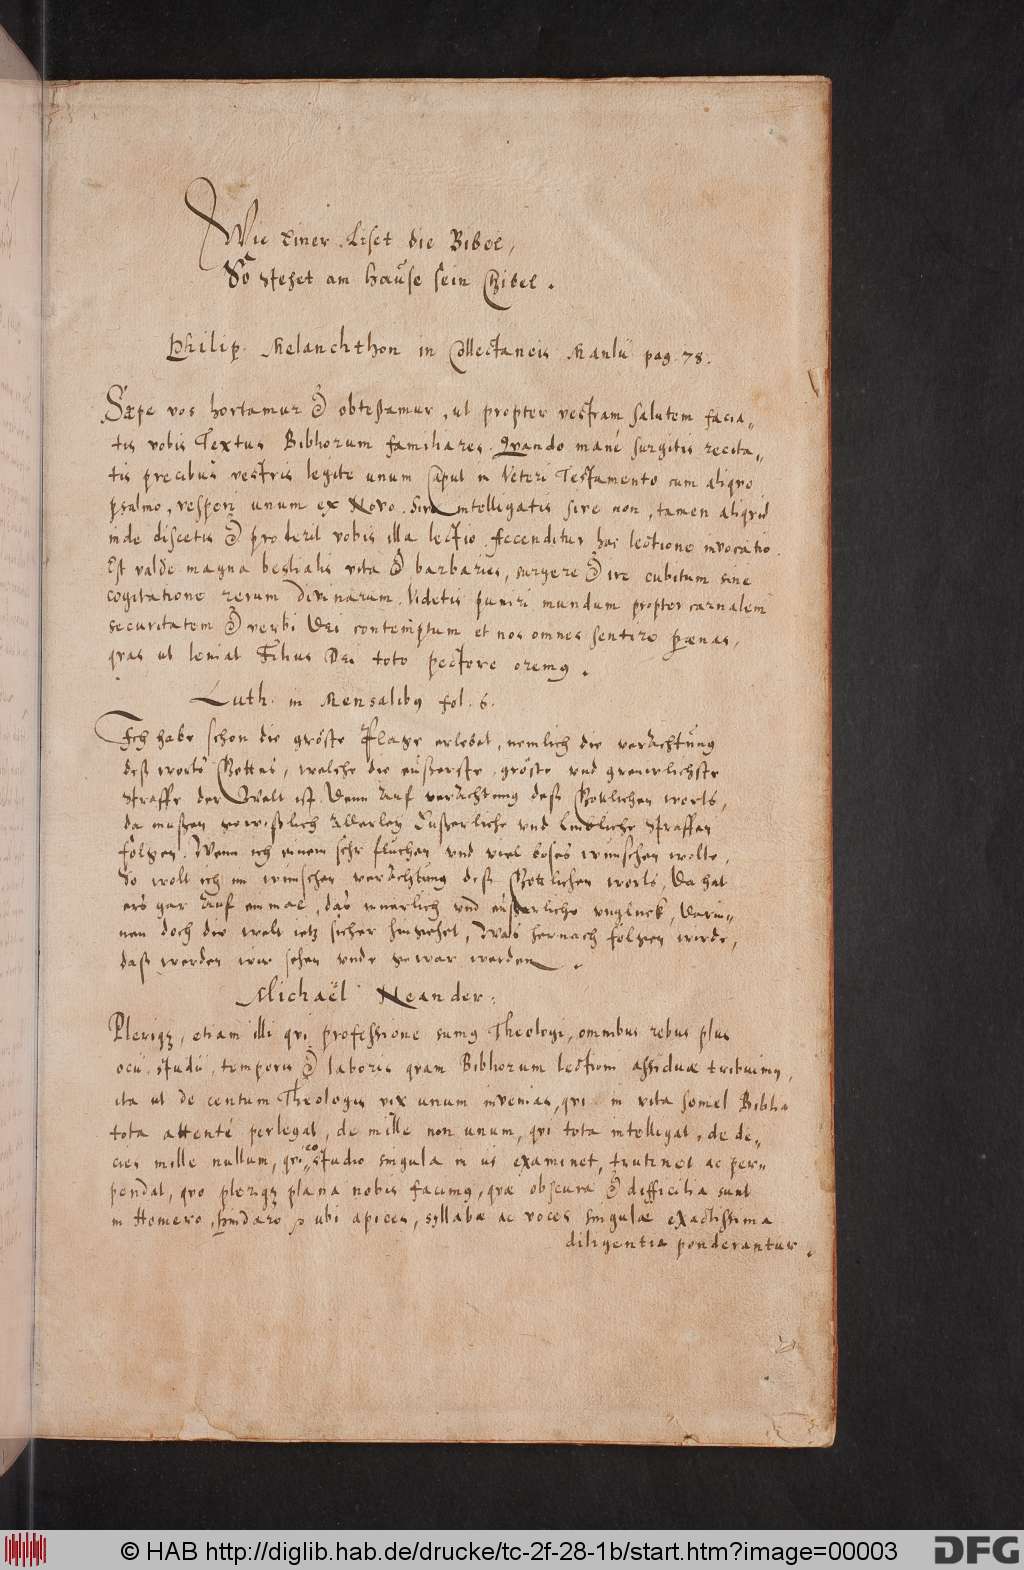 Wie einer Liset die Bibel,
So stehet am hause sein Gibel.
Philip. Melanchthon in Collectaneis Manlii pag. 78.
Sæpe vos hortamur & obtestamur, ut propter vestram salutem facia-
tis vobis Textus Bibliorum familiares. Quando mané surgitis recita-
tis precibus vestris legite unum Caput in Veteri Testamento cum aliquo
psalmo, vesperi unum ex Novo. Sive intelligatis sive non, tamen aliquid
inde discetis & proderit vobis illa lectio. Accenditur hac lectione invocatio.
Est valde magna bestialis vita & barbaries, surgere & ire cubitum sine
cogitatione rerum divinarum. Videtis puniri mundum propter carnalem
securitatem & verbi Dei contemptum et nos omnes sentire pœnas,
quas ut leniat Filius Dei toto pectore oremus.
Luth. in Mensalibus fol. 6.
Ich habe schon die gröste Plage erlebet, nemlich die verachtung
deß worts Gottes, welche die eüßerste, gröste und grewlichste
straffe der Welt ist. Denn auf verachtung deß Göttlichen worts,
da müßen gewißlich allerley Eüßerliche und leibliche straffen
folgen. Wenn ich einem sehr fluchen und viel böses wünschen wolte,
So wolt ich im wünschen verachtung deß Göttlichen worts, Da hat
ers gar auf ein mal, das innerlich und eüßerliche unglück, Darin-
nen doch die welt ietz sicher hingehet, Was hernach folgen wirde,
daß werden wir sehen unde gewar werden.
Michaël Neander.
Plerique, etiam illi qui professione sumus Theologi, omnibus rebus plus
ocii, studii, temporis & laboris quam Bibliorum lectioni assiduæ tribuimus,
ita ut de centum Theologis vix unum invenias, qui in vita semel Biblia
tota attenté perlegat, de mille non unum, qui tota intelligat, de de-
cies mille nullum, qui eo studio singula in iis examinet, trutinet ac per-
pendat, quo pleraque plana nobis facimus, quæ obscura & difficilia sunt
in Homero, Pindaro, ubi apices, syllabæ ac voces singulæ exactissima
diligentia ponderantur.
© HAB http://diglib.hab.de/drucke/tc-2f-28-1b/start.htm?image=00003
DFG